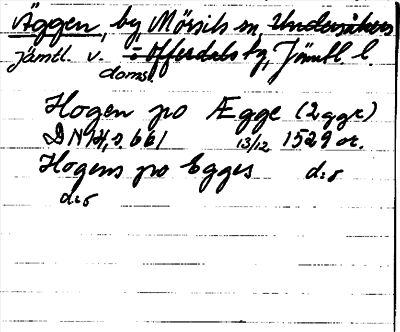 Äggen, by, Mörsils sn, Undersåkers
Jämtl. v. Offerdals tg, Jämtl. l.
doms.
Hogen po Ægge (2 ggr)
DN 14, s. 661 13/12 1529 or.
Hogens po Egges d:o
d:o